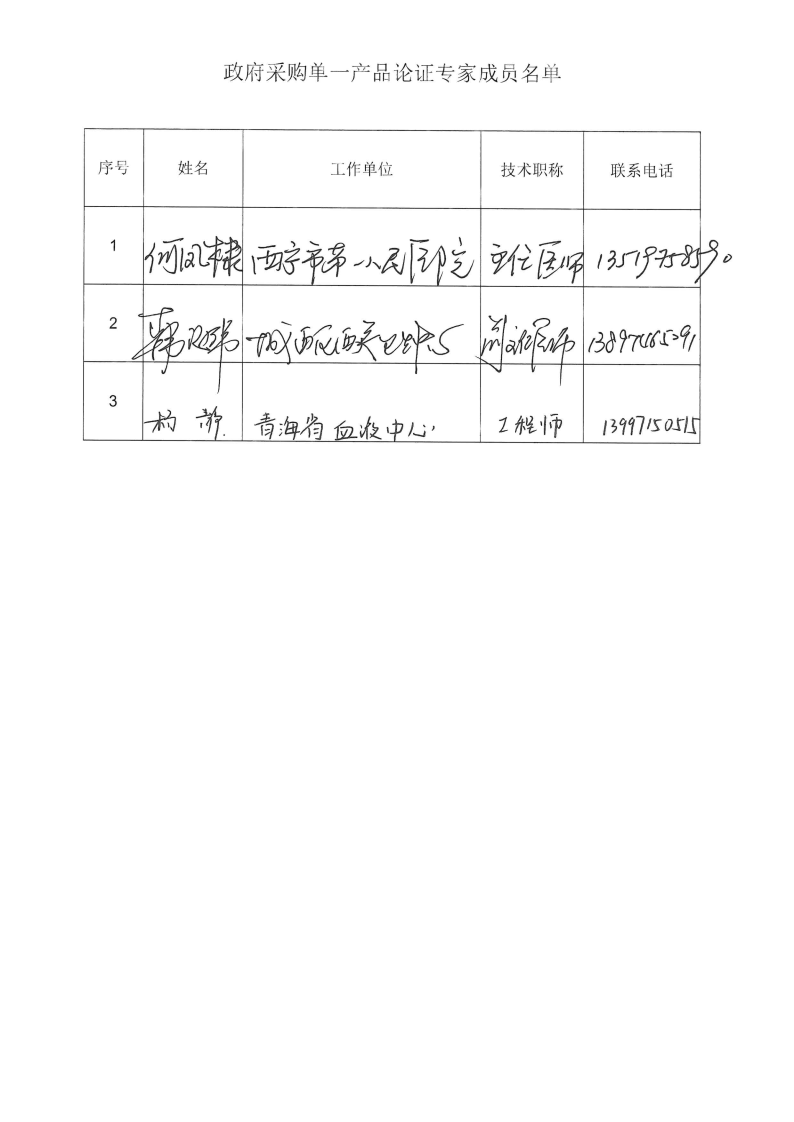 政府采购单一产品论证专家成员名单
序号 姓名 工作单位 技术职称 联系电话
1 何凤棣 西宁市第一人民医院 主任医师 13519758590
2 韩 城西区西关卫生中心 副主任医师
3 杨静 青海省血液中心 工程师 13997150515